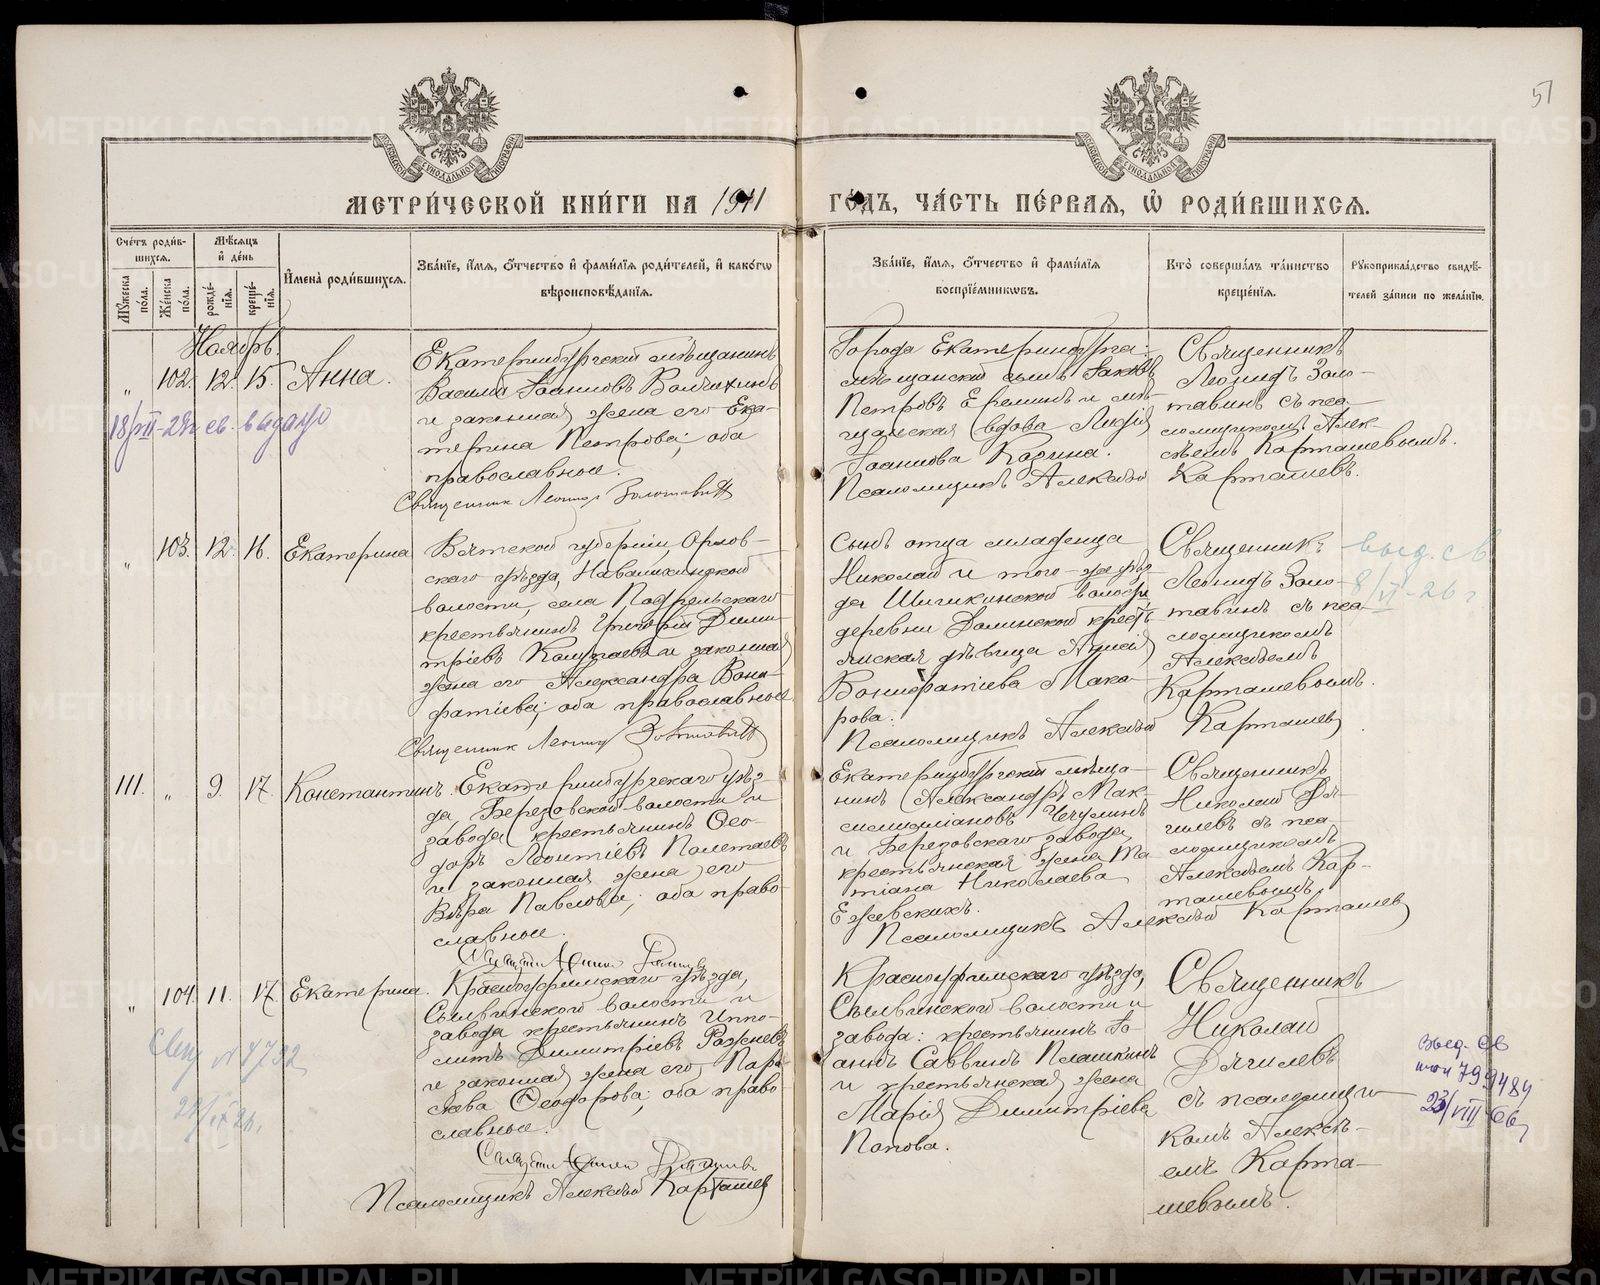 51
МЕТРИ́ЧЕСКОЙ КНИ́ГИ НА 1911 ГО́ДЪ, ЧА́СТЬ ПЕ́РВАЯ, Ѽ РОДИ́ВШИХСЯ.
Сче́тъ роди́вшихся.
Мѣ́сяцъ и де́нь
Мꙋ́жеска по́ла.
Же́нска по́ла.
рожде́нїя.
креще́нїя.
И҆мена̀ роди́вшихся.
Зва́нїе, и҆́мя, ѻ҆́тчество и҆ фами́лїя роди́телей, и҆ како́гѡ
вѣроисповѣ́данїя.
Зва́нїе, и҆́мя, ѻ҆́тчество и҆ фами́лїя
воспрїе́мникѡвъ.
Кто̀ соверша́лъ та́инство
креще́нїя.
Рꙋкоприкла́дство свидѣ́-
телей за́писи по жела́нїю.
Ноябрь.
„ 102. 12. 15. Анна.
Екатеринбургскій мѣщанинъ
Василій Іоанновъ
и законная жена его Ека-
терина Петрова; оба
православные.
Священникъ Леонидъ Золотавинъ
Города Екатеринбурга:
мѣщанскій сынъ Іаковъ
Петровъ Ереминъ и мѣ-
щанская вдова Лидія
Іоаннова Козина.
Псаломщикъ Алексѣй Карташевъ.
Священникъ
Леонидъ Золо-
тавинъ съ пса-
ломщикомъ Алек-
сѣемъ Карташевымъ.
св. выдано
„ 103. 12. 16. Екатерина
Вятской губерніи, Орлов-
скаго уѣзда,
волости, села
крестьянинъ Григорій Дими-
тріевъ и законная
жена его Александра Вони-
фатіева; оба православные
Священникъ Леонидъ Золотавинъ
Сынъ отца младенца
Николай и того-же уѣз-
да волости
деревни крестья-
нская дѣвица
Вонифатіева Мака-
рова.
Псаломщикъ Алексѣй Карташевъ
Священникъ
Леонидъ Золо-
тавинъ съ пса-
ломщикомъ
Алексѣемъ
Карташевымъ.
выд. св
8/VI-26 г
111. „ 9. 17. Константинъ.
Екатеринбургскаго уѣз-
да, Березовской волости и
завода крестьянинъ Ѳео-
доръ Леонтіевъ Полетаевъ
и законная жена его
Вѣра Павлова; оба право-
славные.
Екатеринбургскій мѣща-
нинъ Александръ Мак-
симиліановъ Чечулинъ
и Березовскаго завода
крестьянская жена Та-
тіана Николаева
Ежевскихъ.
Псаломщикъ Алексѣй Карташев
Священникъ
Николай Дя-
гилевъ съ пса-
ломщикомъ
Алексѣемъ Кар-
ташевымъ.
„ 104. 11. 17. Екатерина.
Красноуфимскаго уѣзда,
Сылвинской волости и
завода крестьянинъ Иппо-
литъ Димитріевъ
и законная жена его Пара-
скева Ѳеодорова; оба право-
славные.
Псаломщикъ Алексѣй Карташев
Красноуфимскаго уѣзда,
Сылвинской волости и
завода: крестьянинъ Іо-
аннъ Саввинъ Плашкинъ
и крестьянская жена
Марія Димитріева
Попова.
Священникъ
Николай
Дягилевъ
съ псаломщи-
комъ Алексѣ-
емъ Карта-
шевымъ.
Выд. св
799484
23/VIII-66